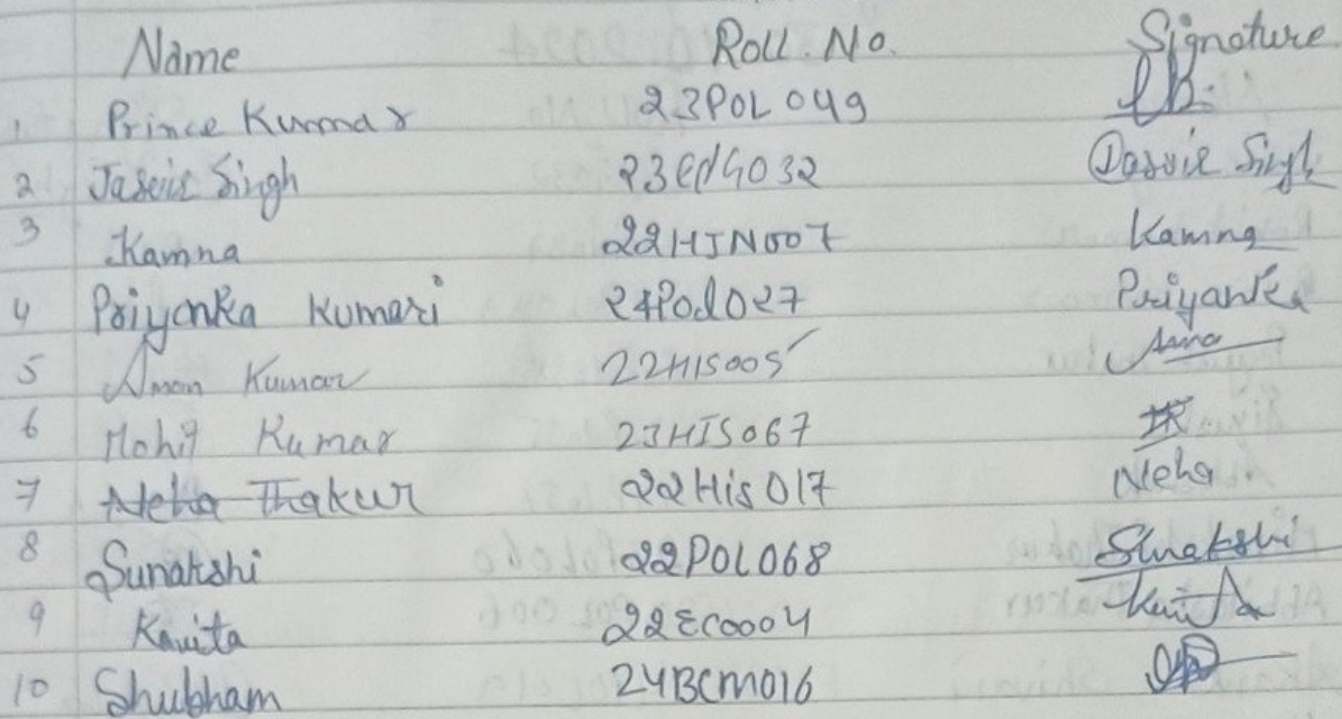 Name Roll. No. Signature
1. Prince Kumar 23POL049
2 Jasvir Singh 23 4032 Jasvir Singh
3 Kamna 22HIN007 Kamna
4 Priyanka Kumari 24Pol027 Priyanka
5 Aman Kumar 22HIS005 Aman
6 Mohit Kumar 23HIS067
7 Neha Thakur 22His017 Neha
8 Sunakshi 22POL068 Sunakshi
9 Kavita 22ECO004 Kavita
10 Shubham 24BCM016